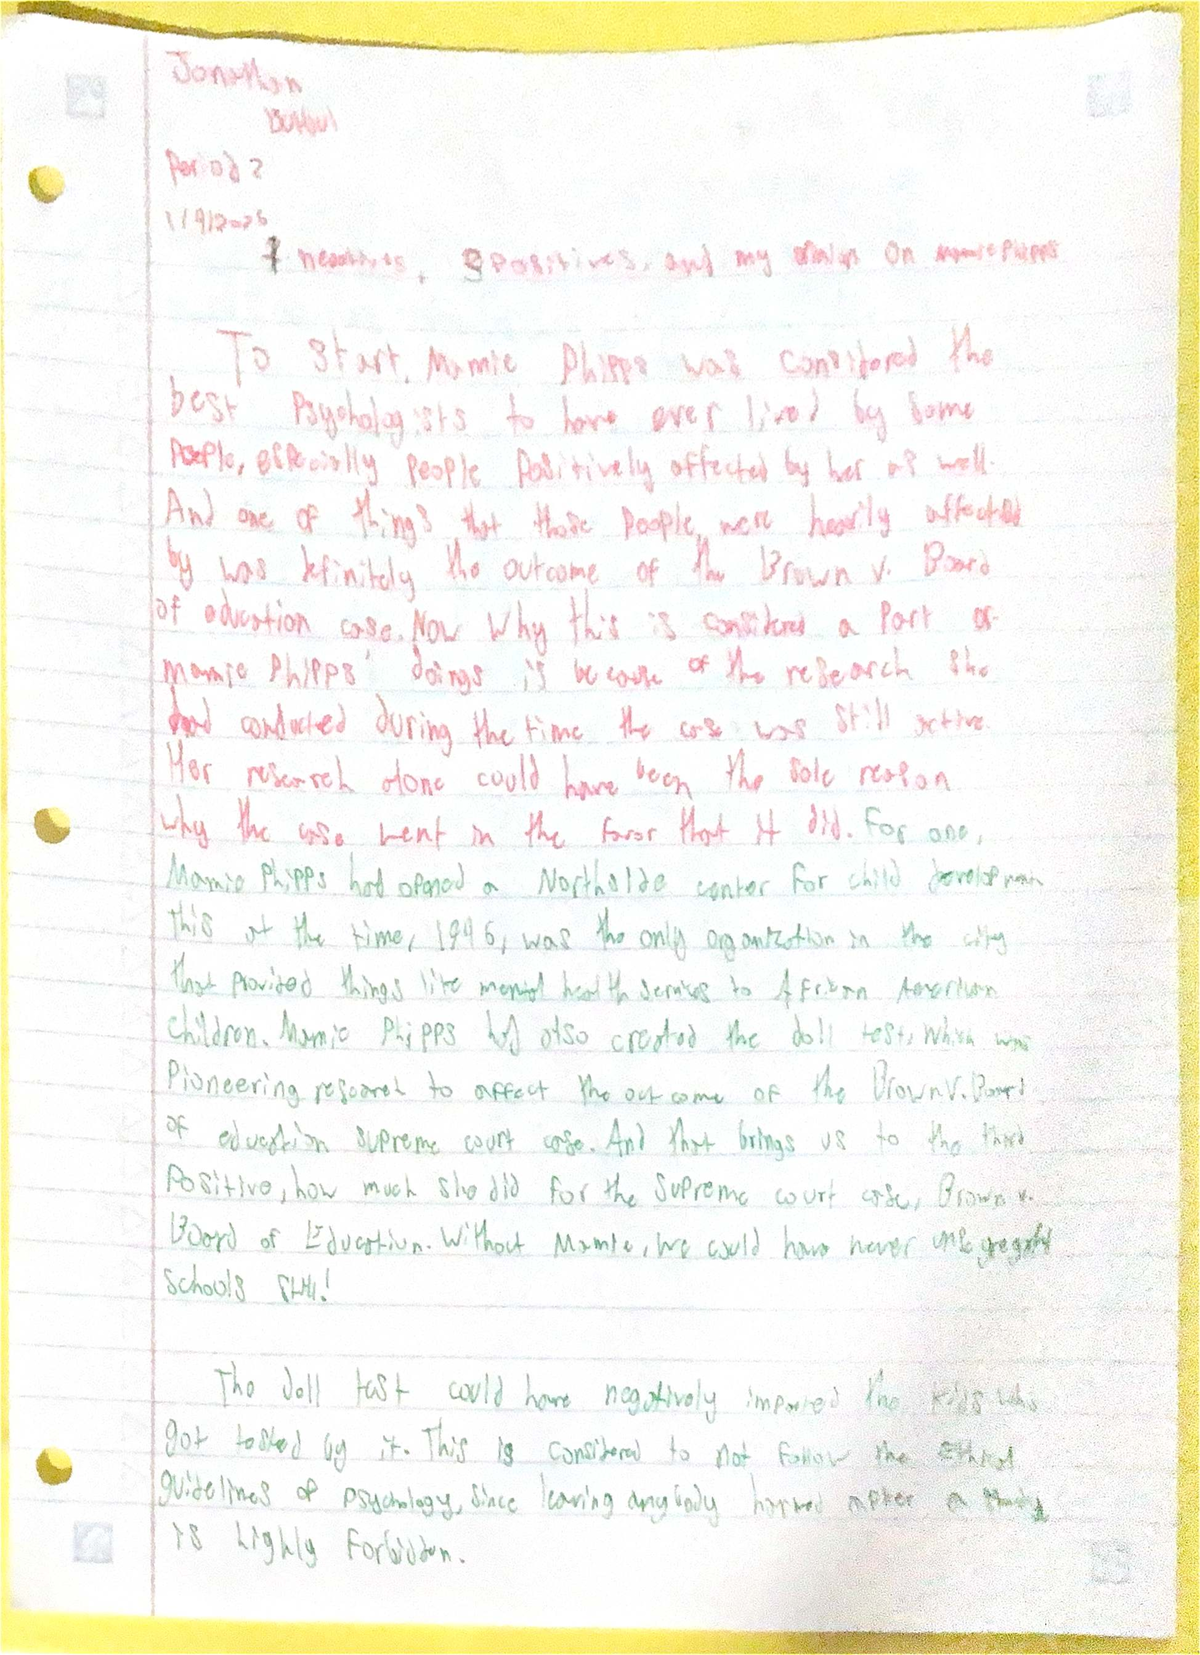 Jonathan
Period 2
1/9/2026
1 negatives, 3 positives, and my opinion on Mamie Phipps
To start, Mamie Phipps was considered the
best Psychologists to have ever lived by some
People, especially people Positively affected by her as well.
And one of things that those people were heavily affected
by was definitely the outcome of the Brown v. Board
of education case. Now Why this is considered a Part of
Mamie Phipps' doings is because of the research she
had conducted during the time the case was still active.
Her research alone could have been the sole reason
why the case went in the favor that it did. For one,
Mamie Phipps had opened a Northside center for child developmen
this at the time, 1946, was the only organization in the city
that provided things like mental health services to African American
children. Mamie Phipps had also created the doll test, which was
Pioneering research to affect the outcome of the Brown V. Board
of education supreme court case. And that brings us to the third
Positive, how much she did for the Supreme court case, Brown v.
Board of Education. Without Mamie, we could have never unsegregated
schools still!
The doll test could have negatively impacted the kids who
got tested by it. This is considered to not follow the Ethical
guidelines of psychology, since leaving anybody harmed after a study
is highly Forbidden.